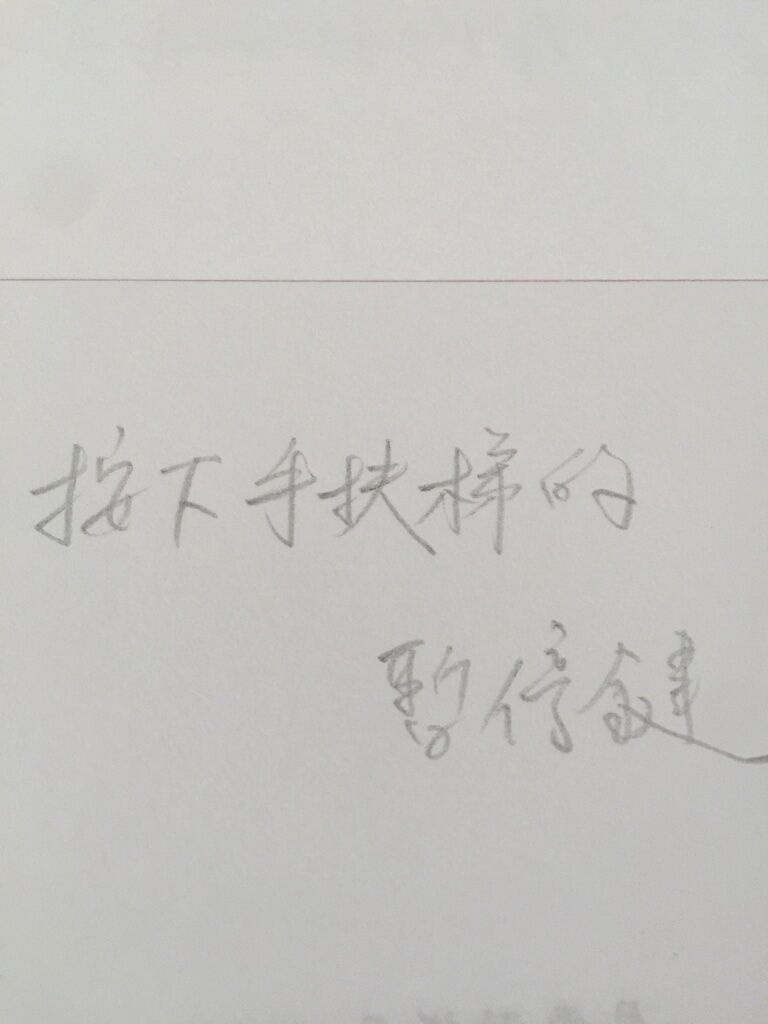 按下手扶梯的
暂停键